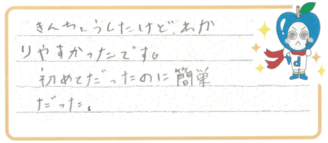 きんちょうしたけど、わか
りやすかったです。
初めてだったのに簡単
だった。
d